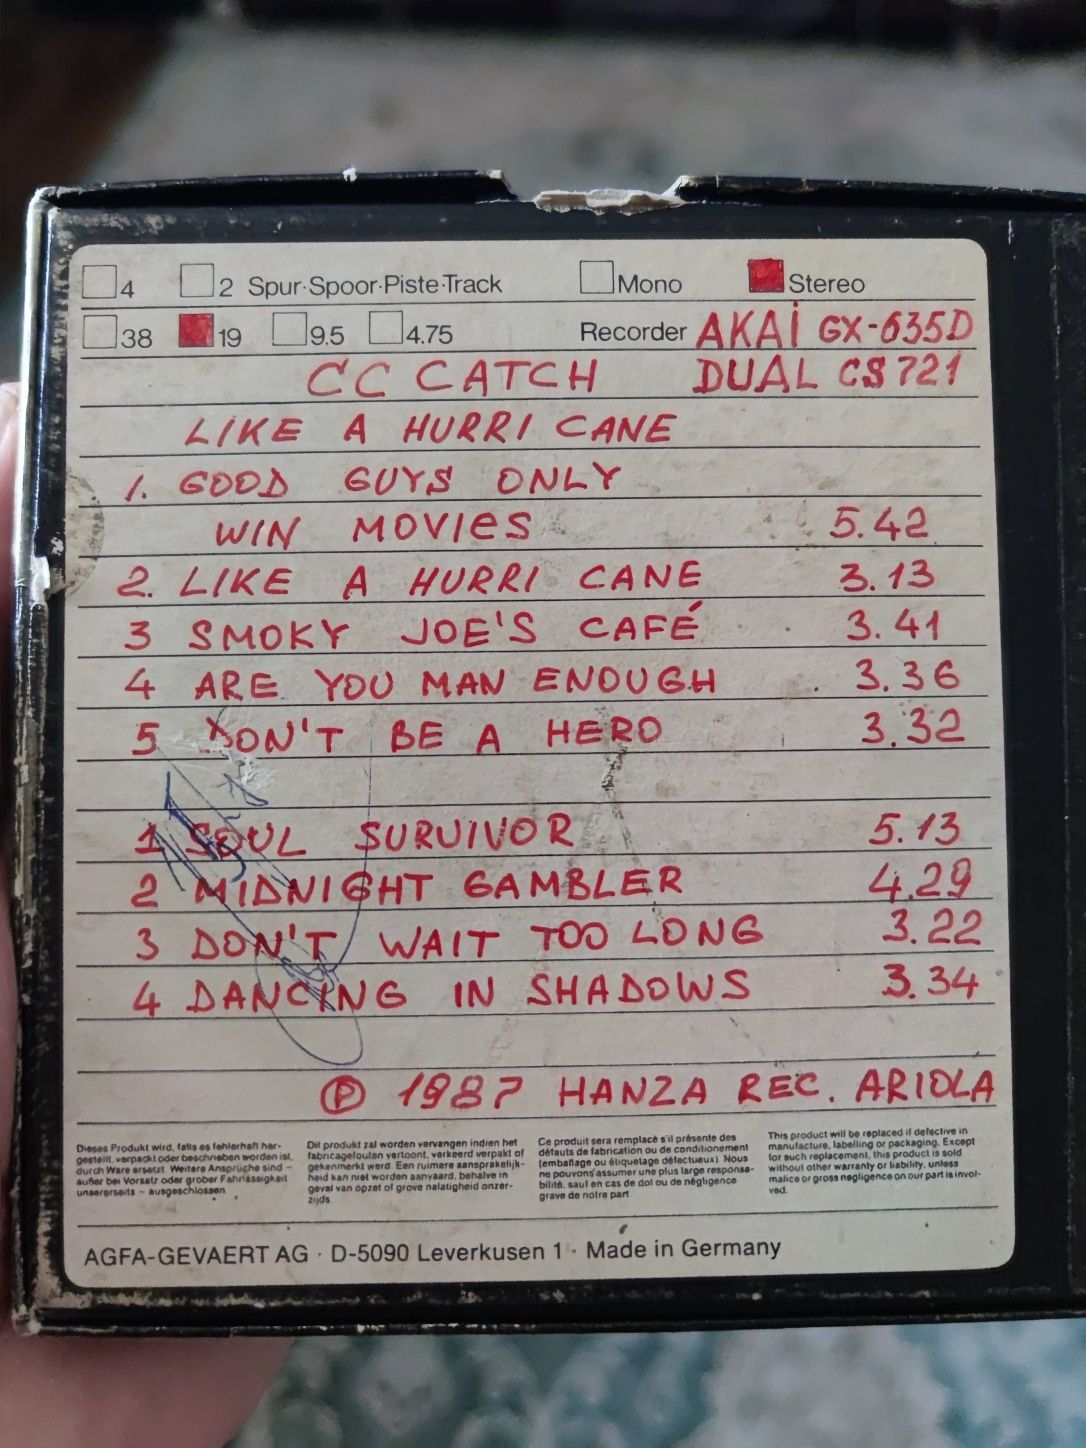 4 2 Spur·Spoor·Piste·Track Mono Stereo
38 19 9.5 4.75 Recorder AKAI GX-635D
CC CATCH DUAL CS721
LIKE A HURRI CANE
1. GOOD GUYS ONLY
WIN MOVIES 5.42
2. LIKE A HURRI CANE 3.13
3 SMOKY JOE'S CAFÉ 3.41
4 ARE YOU MAN ENOUGH 3.36
5 DON'T BE A HERO 3.32
1 SOUL SURUIVOR 5.13
2 MIDNIGHT GAMBLER 4.29
3 DON'T WAIT TOO LONG 3.22
4 DANCING IN SHADOWS 3.34
Ⓟ 1987 HANZA REC. ARIOLA
Dieses Produkt wird, falls es fehlerhaft her-
gestellt, verpackt oder beschrieben worden ist,
durch Ware ersetzt. Weitere Ansprüche sind –
außer bei Vorsatz oder grober Fahrlässigkeit
unsererseits – ausgeschlossen
Dit produkt zal worden vervangen indien het
fabricagefouten vertoont, verkeerd verpakt of
gekenmerkt werd. Een ruimere aansprakelijk-
heid kan niet worden aanvaard, behalve in
geval van opzet of grove nalatigheid onzer-
zijds.
Ce produit sera remplacé s'il présente des
défauts de fabrication ou de conditionement
(emballage ou étiquetage défectueux). Nous
ne pouvons assumer une plus large responsa-
bilité, sauf en cas de dol ou de négligence
grave de notre part
This product will be replaced if defective in
manufacture, labelling or packaging. Except
for such replacement, this product is sold
without other warranty or liability, unless
malice or gross negligence on our part is invol-
ved.
AGFA-GEVAERT AG · D-5090 Leverkusen 1 · Made in Germany